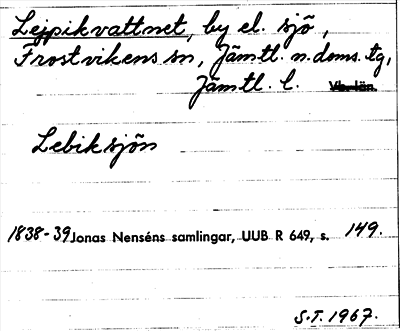 Lejpikvattnet, by el. sjö,
Frostvikens sn, Jämtl. n. doms. tg,
Jämtl. l.
Lebiksjön
1838-39 Jonas Nenséns samlingar, UUB R 649, s. 149.
S.T. 1967.